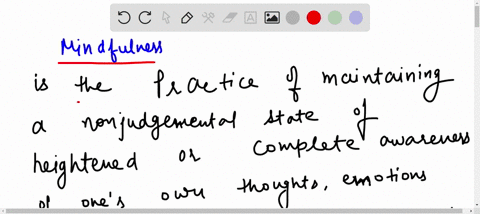 Mindfulness
is the Practice of maintaining
a nonjudgemental state of
heightened or complete awareness
of one's own thoughts, emotions